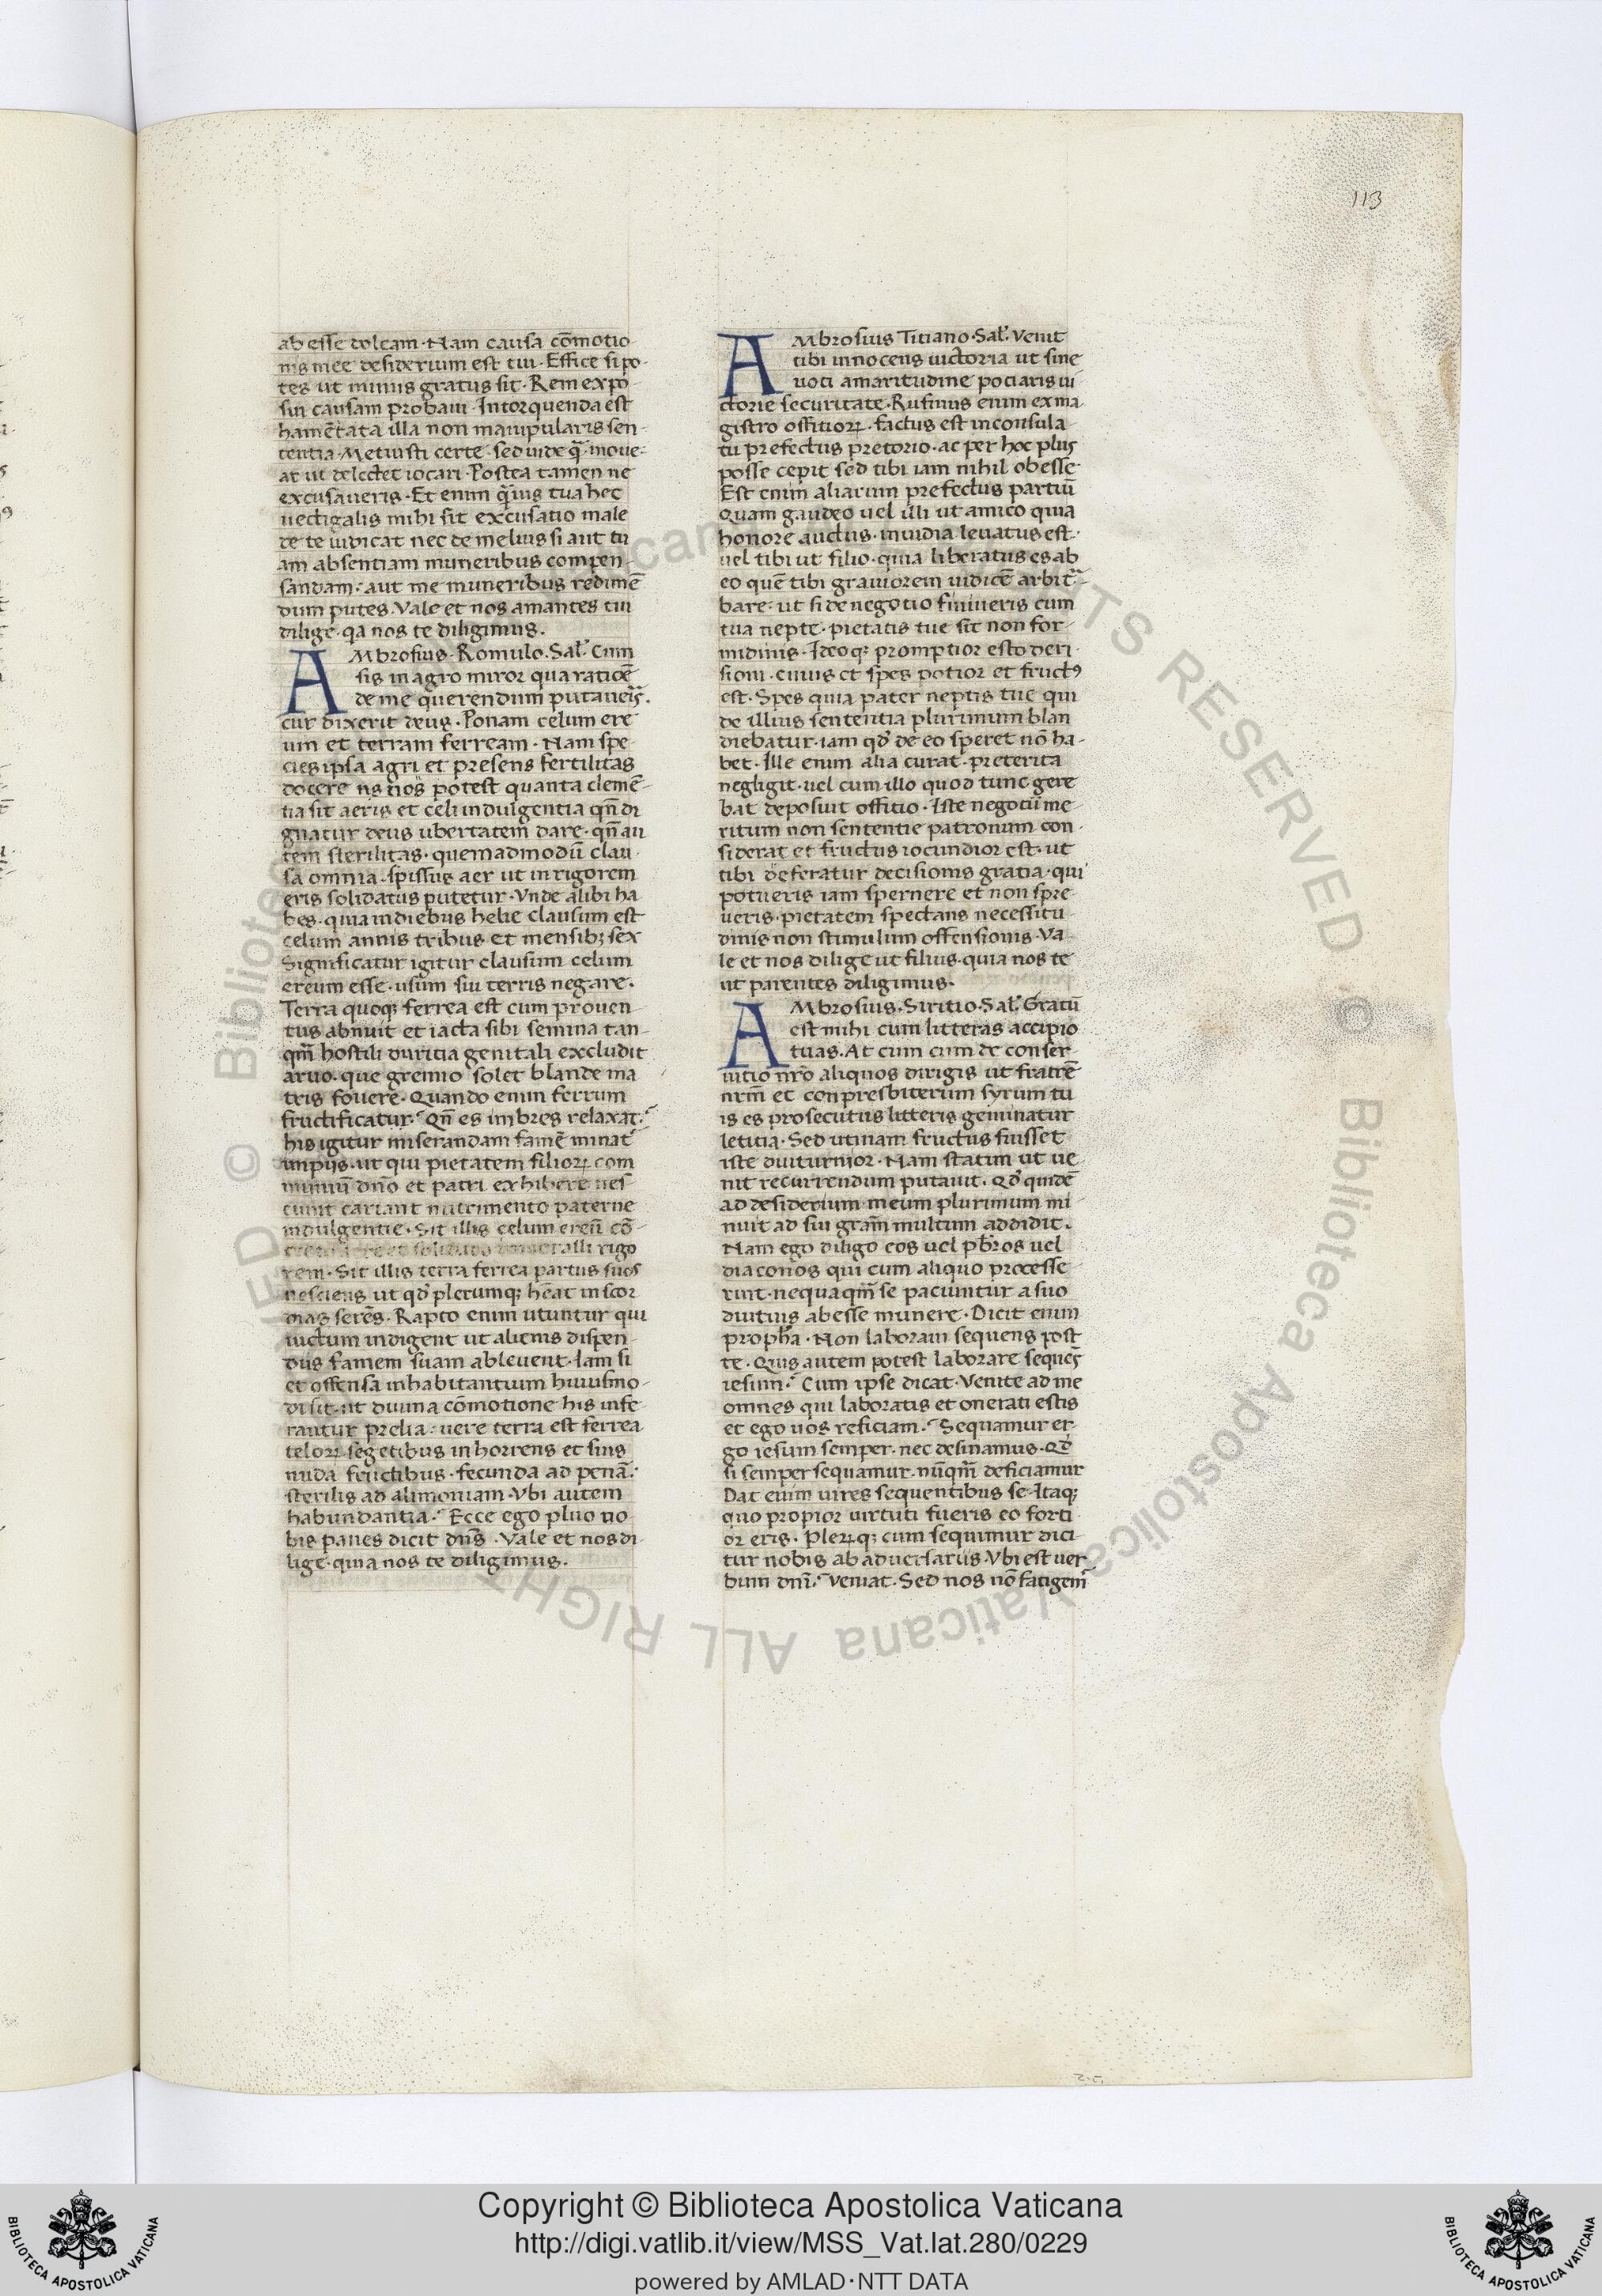 113
ab esse doleam · Nam causa cōmotio
nis mee desiderium est tui · Effice si po-
tes ut minus gratus sit · Rem expo
sui causam probaui · Intorquenda est
hamētata illa non manipularis sen-
tentia · Metiusti certe · sed uide q̄ moue-
at ut delectet iocari · Postea tamen ne
excusaueris · Et enim q̄uis tua hec
uectigalis mihi sit excusatio male
de te iudicat nec de melius si aut tu
am absentiam muneribus compen-
sandam: aut me muneribus redimē
dum putes. Vale et nos amantes tui
dilige · qa nos te diligimus.
AMbrosius · Romulo · Sal'. Cum
sis in agro miror qua raticē
de me querendum putaueis̄.
cur dixerit deus · Ponam celum ere
um et terram ferream · Nam spe-
cies ipsa agri et presens fertilitas
docere ns nos potest quanta clemē-
tia sit aeris et celi indulgentia qn̄ di
gnatur deus ubertatem dare · qn̄ au
tem sterilitas · quemadmodū clau-
sa omnia · spissus aer ut in rigorem
eris solidatus putetur · Vnde alibi ha
bes · quia in diebus helie clausum est
celum annis tribus et mensibꝫ sex
Significatur igitur clausum celum
ereum esse · usum sui terris negare ·
Terra quoqꝫ ferrea est cum prouen-
tus abnuit et iacta sibi semina tan-
qm̄ hostili duritia genitali excludit
aruo · que gremio solet blande ma
tris fouere · Quando enim ferrum
fructificatur? Qn̄ es imbres relaxat?
his igitur miserandam famē minat̄
impiis · ut qui pietatem filioꝝ com
muniū dn̄o et patri exhibere nes
ciunt cariant nutrimento paterne
indulgentie · Sit illis celum ereū cō-
rigo
rem · Sit illis terra ferrea partus suos
nesciens ut qd̓ plerumqꝫ hēat in scor
dias serēs · Rapto enim utuntur qui
uictum indigent ut alienis dispen-
diis famem suam ableuent · Iam si
et offensa inhabitantium huiusmo-
di sit · ut diuina cōmotione his infe-
rantur prelia: uere terra est ferrea
teloꝝ segetibus inhorrens et suis
nuda fructibus · fecunda ad penā:
sterilis ad alimoniam · Vbi autem
habundantia? Ecce ego pluo uo
bis panes dicit dn̄s · Vale et nos di-
lige · quia nos te diligimus.
AMbrosius Titiano · Sal'. Venit
tibi innocens uictoria ut sine
uoti amaritudine pociaris ui
ctorie securitate · Rufinus enim ex ma
gistro offitioꝝ · factus est in consula-
tu prefectus pretorio · ac per hoc plus
posse cepit sed tibi iam nihil obesse ·
Est enim aliarum prefectus partiū
Quam gaudeo uel illi ut amico quia
honore auctus · inuidia leuatus est ·
uel tibi ut filio · quia liberatus es ab
eo quē tibi grauiorem iudicē arbit̄-
bare: ut si de negotio finiueris cum
tua nepte · pietatis tue sit non for-
midinis · Ideoqꝫ promptior esto deci-
sioni · cuius et spes potior et fructꝰ
est · Spes quia pater neptis tue qui
de illius sententia plurimum blan
diebatur · iam qd̓ de eo speret nō ha-
bet · Ille enim alia curat · preterita
negligit · uel cum illo quod tunc gere
bat deposuit offitio · Iste negotiī me-
ritum non sententie patronum con-
siderat et fructus iocundior est · ut
tibi deferatur decisionis gratia · qui
potueris iam spernere et non spre-
ueris · pietatem spectans necessitu-
dinis non stimulum offensionis · Va-
le et nos dilige ut filius · quia nos te
ut parentes diligimus ·
AMbrosius · Siritio · Sal'. Gratū
est mihi cum litteras accipio
tuas · At cum cum de conser-
uitio nr̄o aliquos dirigis ut fratrē
nrm̄ et conpresbiterum syrum tu
is es prosecutus litteris geminatur
letitia · Sed utinam fructus fuisset
iste diuturnior · Nam statim ut ue
nit recurrendum putauit · Qd̓ quidē
ad desiderium meum plurimum mi
nuit ad sui gram̄ multum addidit.
Nam ego diligo eos uel pb̄ros uel
diaconos qui cum aliquo processe
rint · nequaqm̄ se paciuntur a suo
diutius abesse munere · Dicit enim
propħa · Non laboraui sequens post
te · Quis autem potest laborare sequēs
iesum? Cum ipse dicat · Venite ad me
omnes qui laboratis et onerati estis
et ego uos reficiam? Sequamur er-
go iesum semper · nec desinamus · Qd̓
si semper sequamur · nūqm̄ deficiamur
Dat enim uires sequentibus se · Itaqꝫ
quo propior uirtuti fueris eo forti-
or eris · Pleꝝqꝫ cum sequimur dici-
tur nobis ab aduersariis Vbi est uer
bum dn̄i? Veniat · Sed nos nō fatigem̄
© Biblioteca Apostolica Vaticana ALL RIGHTS RESERVED
Copyright © Biblioteca Apostolica Vaticana
http://digi.vatlib.it/view/MSS_Vat.lat.280/0229
powered by AMLAD·NTT DATA
BIBLIOTECA APOSTOLICA VATICANA
BIBLIOTECA APOSTOLICA VATICANA